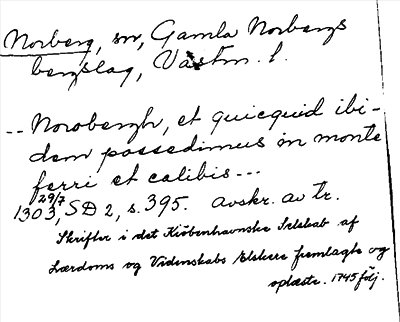 Norberg, sn, Gamla Norbergs
bergslag, Västm. l.
-- Norobergh, et quicquid ibi-
dem possedimus in monte
ferri et calibis ---
29/7
1303, SD 2, s. 395. avskr. av tr.
Skrifter i det Kiöbenhavnske Selskab af
Lærdoms og Videnskabs Elskere fremlagte og
oplæste. 1745 följ.